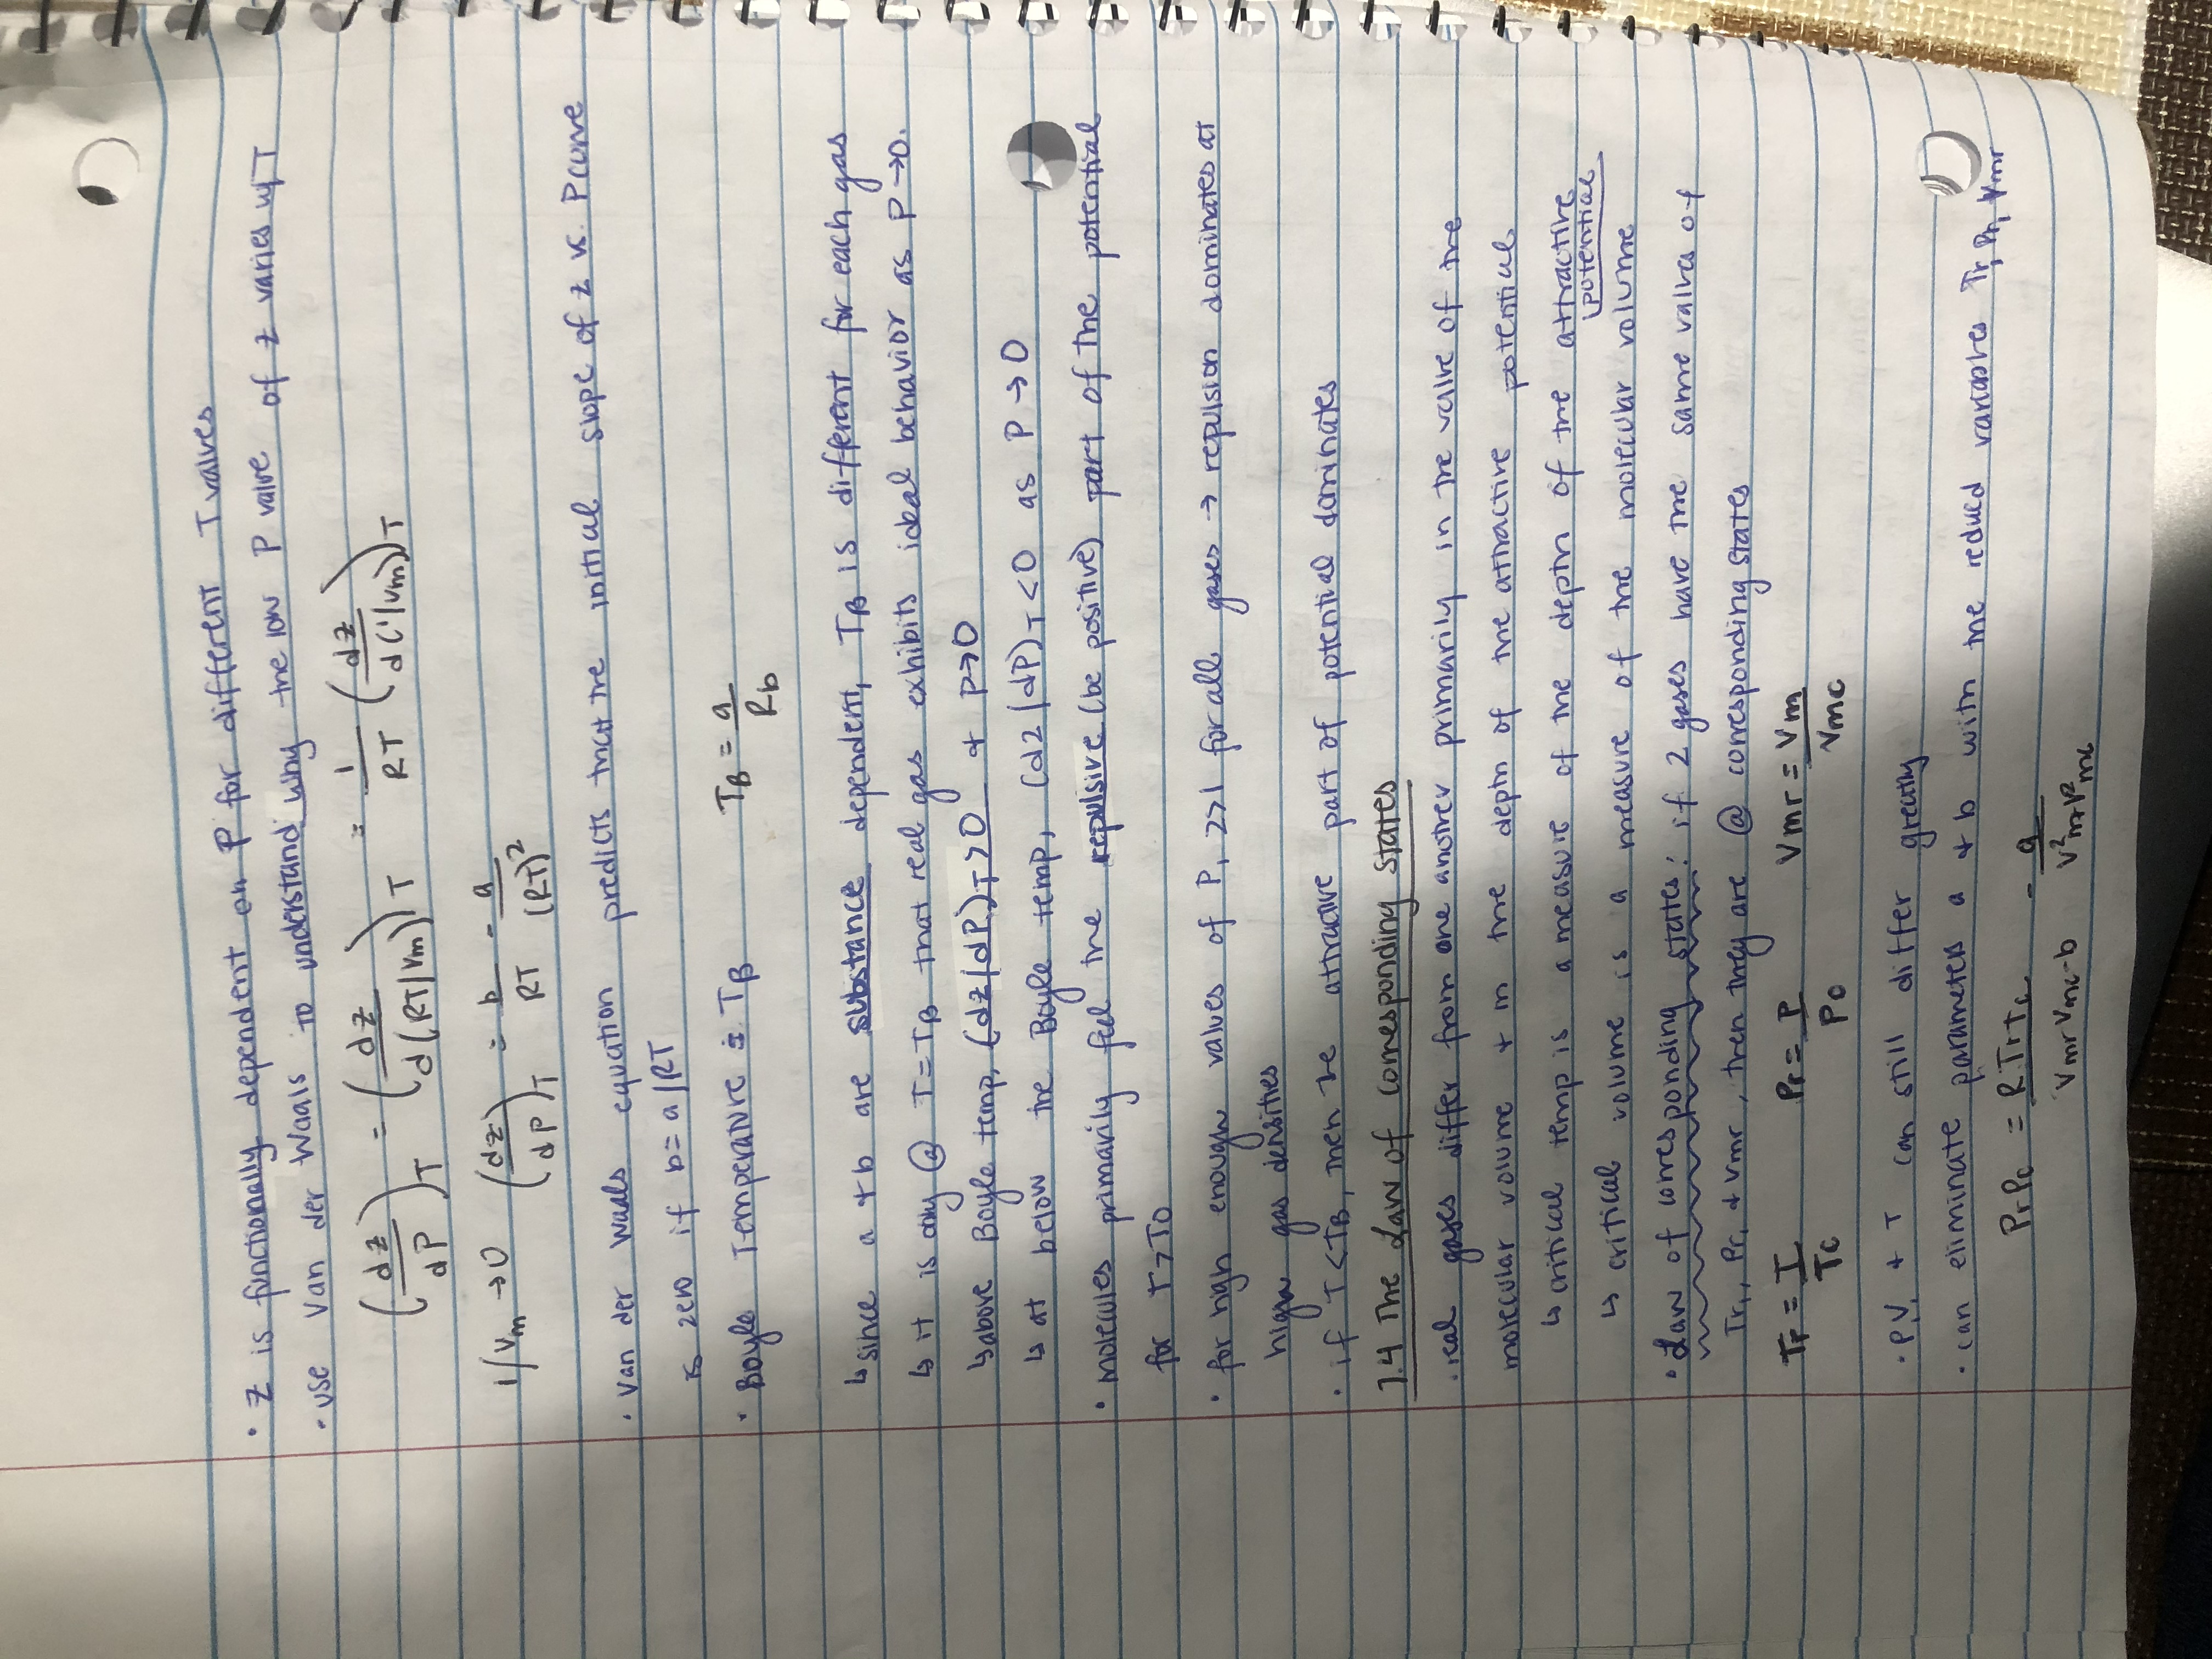 · Z is functionally dependent on P for different T values
· use Van der Waals to understand why the low P value of z varies w/T
(dz/dP)T = (dz/d(RT/Vm))T = 1/RT (dz/d(1/Vm))T
1/Vm → 0 (dz/dP)T = b/RT - a/(RT)²
· Van der Waals equation predicts that the initial slope of z vs. P curve
is zero if b = a/RT
· Boyle Temperature : TB TB = a/Rb
↳ since a + b are substance dependent, TB is different for each gas
↳ it is only @ T=TB that real gas exhibits ideal behavior as P→0.
↳ above Boyle temp, (dz/dP)T>0 + P→0
↳ at below the Boyle temp, (dz/dP)T<0 as P→0
· molecules primarily feel the repulsive (be positive) part of the potential
for T>T0
· for high enough values of P, z>1 for all gases → repulsion dominates at
high gas densities
· if T<TB, then the attractive part of potential dominates
7.4 The Law of Corresponding States
· real gases differ from one another primarily in the value of the
molecular volume + in the depth of the attractive potential
↳ critical temp is a measure of the depth of the attractive
potential
↳ critical volume is a measure of the molecular volume
· Law of corresponding states: if 2 gases have the same values of
Tr, Pr, + Vmr, then they are @ corresponding states
Tr = T/Tc Pr = P/Pc Vmr = Vm/Vmc
· P, V, + T can still differ greatly
· can eliminate parameters a + b with the reduced variables Tr, Pr, Vmr
PrPc = RTrTc/Vmr Vmc-b - a/V²mrV²mc